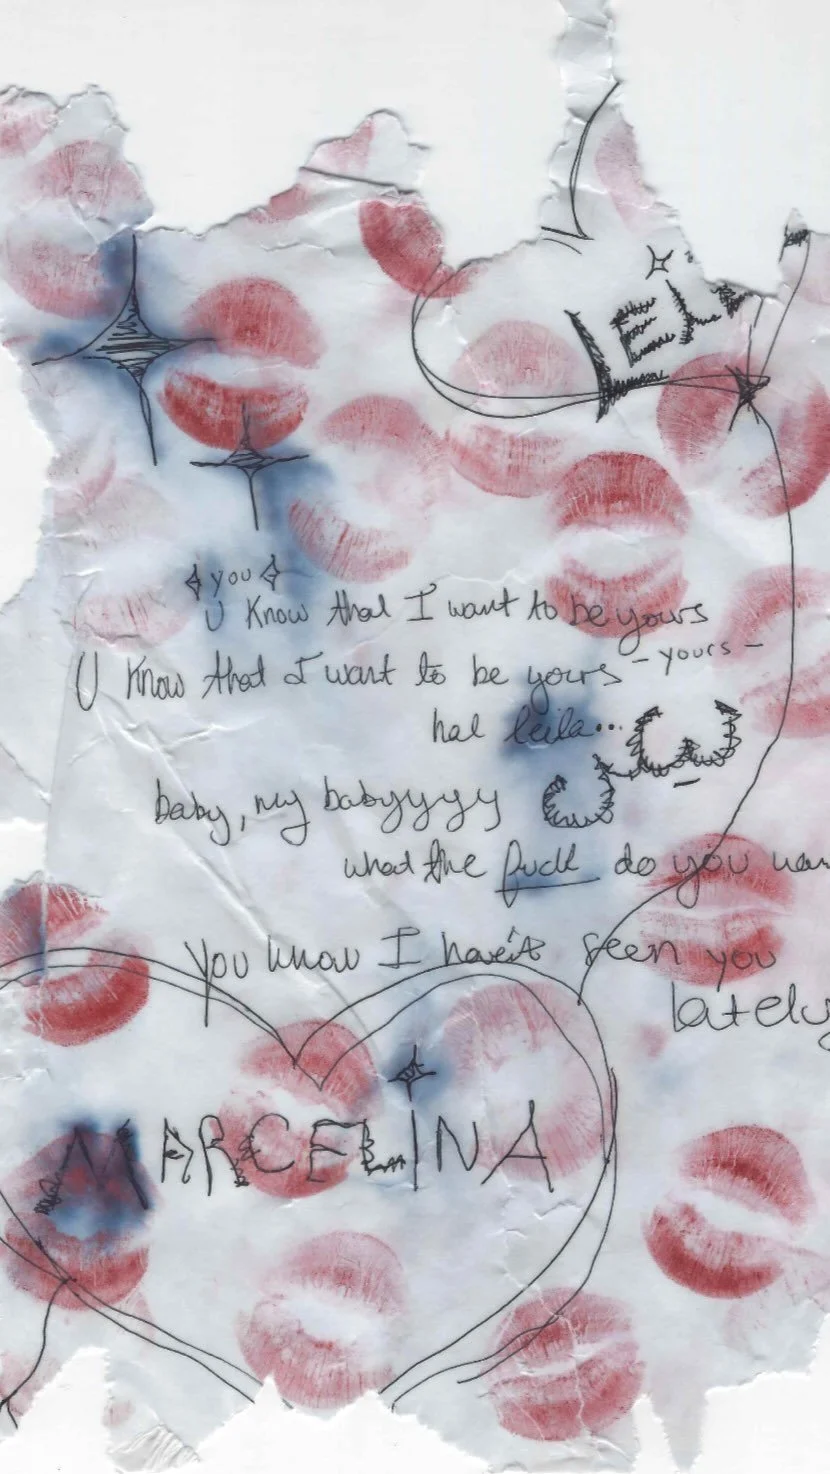 you
U Know that I want to be yours
U Know that I want to be yours - yours -
hal leila...
baby, my babyyyy
what the fuck do you
You know I haven't seen you
lately
MARCELINA